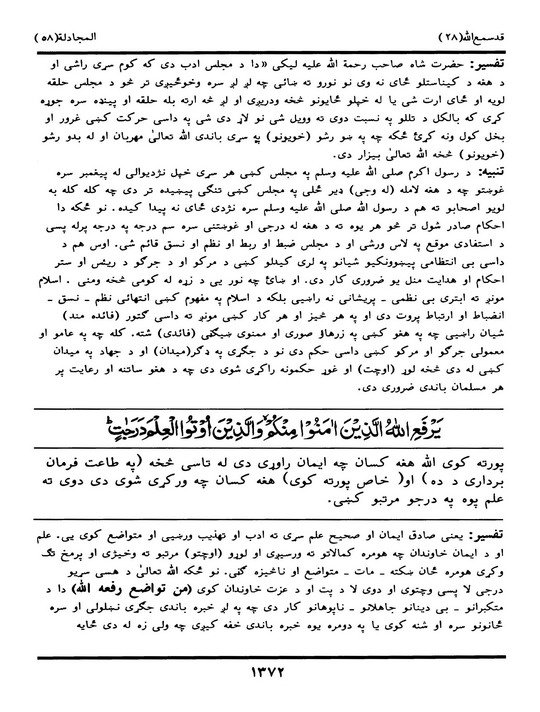 قدسمع الله (۲۸) المجادلة (۵۸)
تفسیر: حضرت شاه صاحب رحمة الله علیه لیکي «دا د مجلس ادب دی که کوم سړی راشي او
د هغه د کیناستلو ځای نه وي نو نورو ته ښائي چه لږ لږ سره وخوځیږي تر څو د مجلس حلقه
لویه او ځای ارت شي یا له خپلو ځایونو څخه ودریږي او لږ څه ارته بله حلقه او پینډه سره جوړه
کړي که بالکل د تللو په نسبت دوی ته وویل شي نو لاړ دي شي په داسي حرکت کښي غرور او
بخل کول ونه کړئ ځکه چه په ښو رشو (خویونو) په سړي باندي الله تعالیٰ مهربان او له بدو رشو
(خویونو) څخه الله تعالیٰ بیزار دی.
تنبیه: د رسول اکرم صلی الله علیه وسلم په مجلس کښي هر سړی خپل نژدیوالی له پیغمبر سره
غوښتو چه د هغه لامله (له وجي) ډیر ځلي په مجلس کښي تنګي پیښیده تر دی چه کله کله به
لویو اصحابو ته هم د رسول الله صلی الله علیه وسلم سره نژدي ځای نه پیدا کیده. نو ځکه دا
احکام صادر شول تر څو هر یوه ته د هغه له درجي او غوښتنی سره سم درجه په درجه پرله پسي
د استفادي موقع په لاس ورشي او د مجلس ضبط او ربط او نظم او نسق قائم شي. اوس هم د
داسي بی انتظامی پیښوونکیو شیانو په لري کیدلو کښي د مرکو او د جرګو د رئیس او ستر
احکام او هدایت منل یو ضروري کار دی. او ښائ چه نور یي د زړه له کومي څخه ومني. اسلام
مونږ ته ابتري بی نظمی - پریشاني نه راښیي بلکه د اسلام په مفهوم کښي انتهائي نظم - نسق -
انضباط او ارتباط پروت دی او په هر څیز او هر کار کښي مونږ ته داسي ګټور (فائده مند)
شیان راښیي چه په هغو کښي په زرهاؤ صوري او معنوي ښیګڼي (فائدې) شته. کله چه په عامو او
معمولي جرګو او مرکو کښي داسي حکم دی نو د جګړي په ډګر (میدان) او د جهاد په میدان
کښي له دی څخه لوړ (اوچت) او غوړ حکمونه راکړی شوی دی چه د هغو ساتنه او رعایت پر
هر مسلمان باندي ضروري دی.
يَرْفَعِ اللهُ الَّذِيْنَ اٰمَنُوْا مِنْكُمْ وَالَّذِيْنَ اُوْتُوا الْعِلْمَ دَرَجٰتٍ
پورته کوي الله هغه کسان چه ایمان راوړي دی له تاسي څخه (په طاعت فرمان
برداري د ده) او( خاص پورته کوي) هغه کسان چه ورکړي شوی دی دوی ته
علم پوه په درجو مرتبو کښي.
تفسیر: یعني صادق ایمان او صحیح علم سړی ته ادب او تهذیب ورښیي او متواضع کوي یي. علم
او د ایمان خاوندان چه هومره کمالاتو ته ورسیږي او لوړو (اوچتو) مرتبو ته وخیژي او پرمخ تګ
وکړي هومره ځان ښکته - مات - متواضع او ناڅیزه ګڼي. نو ځکه الله تعالیٰ د هسي سړیو
درجي لا پسي وچتوي او دوی لا د پت او د عزت خاوندان کوي (من تواضع رفعه الله) دا د
متکبرانو - بی دینانو جاهلانو - ناپوهانو کار دی چه په لږ خبره باندي جګړي نښلولي او سره
ځانونو سره او شنه کوي یا په دومره یوه خبره باندي خفه کیږي چه ولي زه له دی ځایه
۱۳۷۲